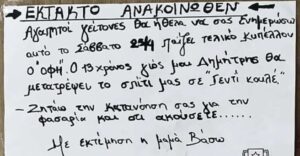 ΕΚΤΑΚΤΟ ΑΝΑΚΟΙΝΩΘΕΝ
Αγαπητοί γείτονες θα ήθελα να σας ενημερώσω
αυτό το Σάββατο 25/4 παίζει τελικό κυπέλλου
ο "ΟΦΗ". Ο 13χρονος γιός μου Δημήτρης θα
μετατρέψει το σπίτι μας σε "Γεντί κουλέ".
- Ζητάω την κατανόηση σας για την
φασαρία και ότι ακούσετε......
Με εκτίμηση η μαμά Βάσω